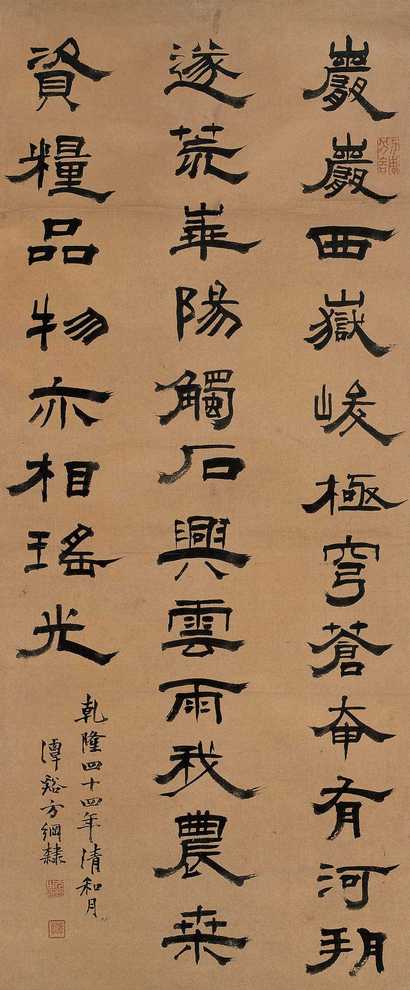 巖巖西嶽峻極穹蒼奄有河朔
遂荒崋陽觸石興雲雨我農桒
資糧品物亦相瑤光
乾隆四十四年清和月
潭谿方綱隸